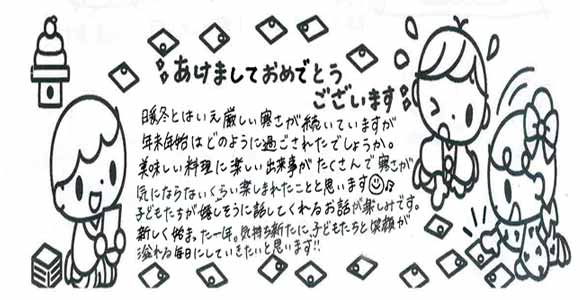 あけましておめでとう
ございます
暖冬とはいえ厳しい寒さが続いていますが
年末年始はどのように過ごされたでしょうか。
美味しい料理に楽しい出来事がたくさんで寒さが
気にならないくらい楽しまれたことと思います☺♪
子どもたちが嬉しそうに話してくれるお話が楽しみです。
新しく始まった一年。気持ち新たに、子どもたちと笑顔が
溢れる毎日にしていきたいと思います!!